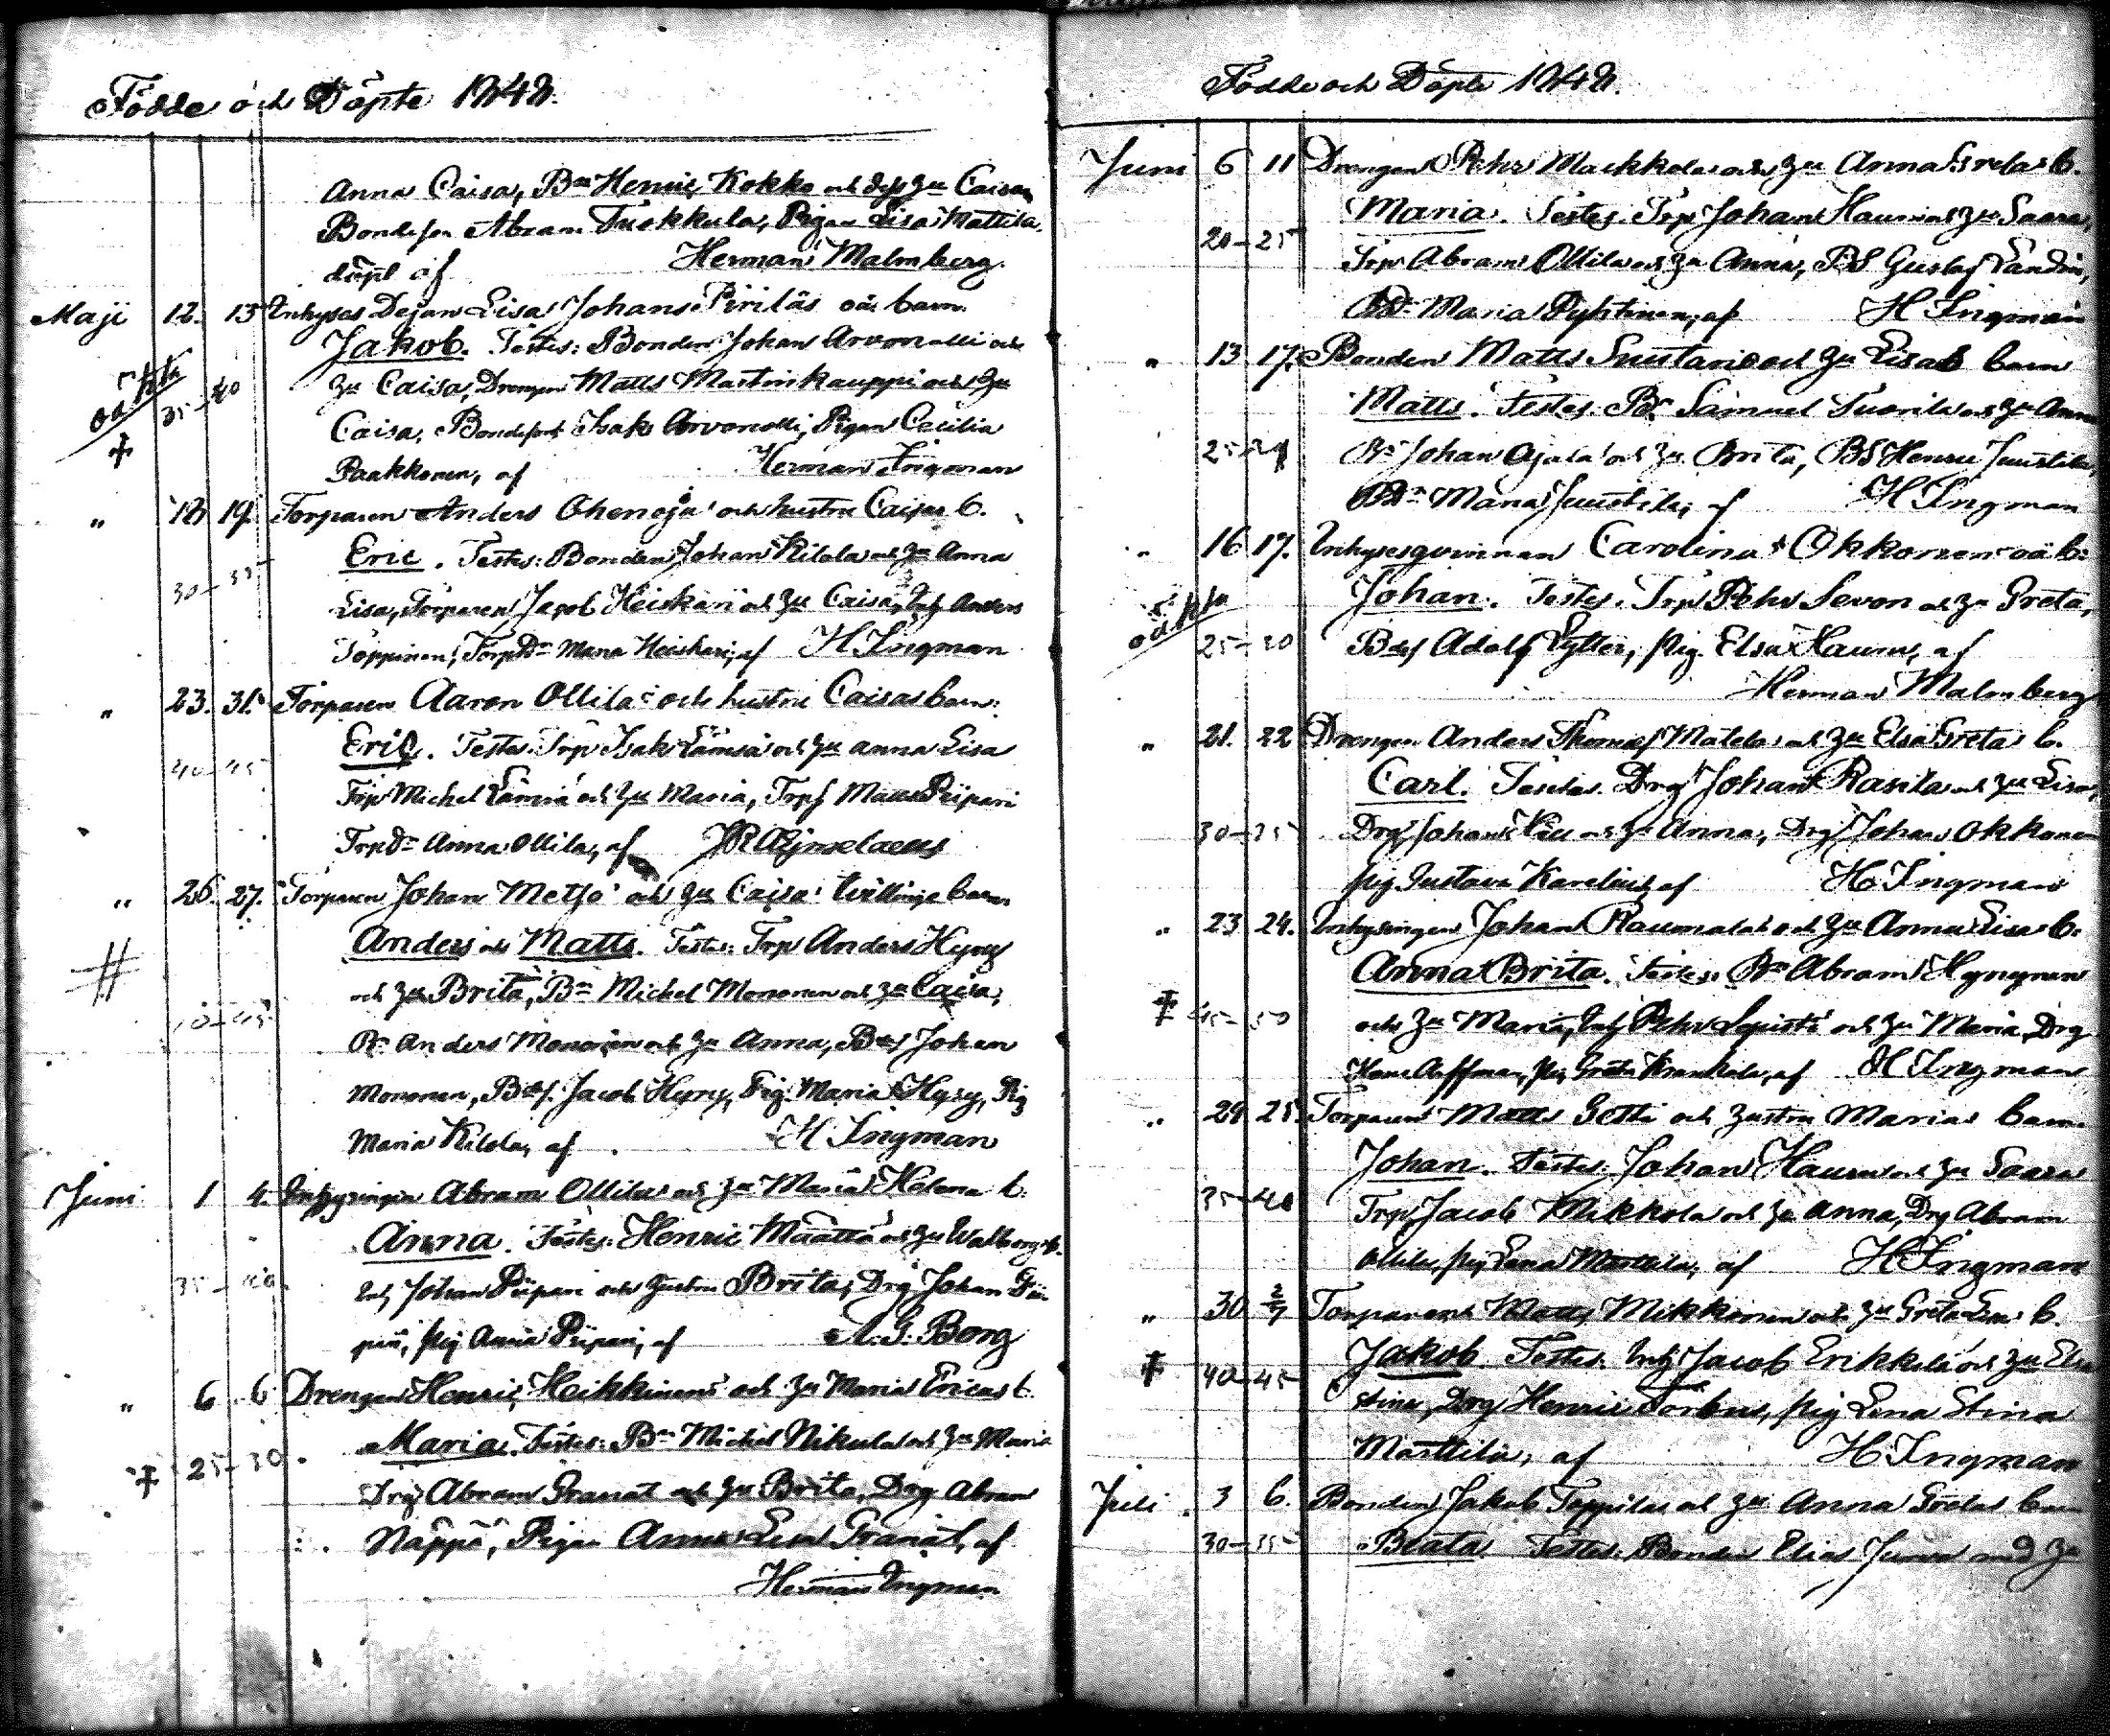 Födde och Döpte 1848.
Anna Caisa, Bn Henric Kokko och dess hu Caisa
Bondeson Abram Tuokkola, Pigan Lisa Mattila,
döpt af Herman Malmberg.
Maji 12. 13 Inhyses Dejan Lisa Johans Piriläs oä barn
Jakob. Testes: Bonden Johan Arvonolli och
oäkta 35–40 hu Caisa, Drengen Matts Martinkauppi och hu
Caisa, Bondeson Isak Arvonolli, Pigan Cecilia
Paakkonen, af Herman Ingman
" 18 19. Torparen Anders Ohenoja och hustru Caisas b.
Eric. Testes: Bonden Johan Kilola och hu Anna
30–35 Lisa, Torparen Jacob Heiskari och hu Caisa, Inh Anders
Toppinen, TorpDr Maria Heiskari, af H Ingman
" 23. 31. Torparen Aaron Ollila och hustru Caisas barn:
Eric. Testes: Trp Isak Lämsä och hu Anna Lisa
40–45 Trp Michel Lämsä och hu Maria, Trps Matts Piipari
Trpdr Anna Ollila, af
" 26. 27. Torparen Johan Metso och hu Caisas tvillinge barn
Anders och Matts. Testes: Trp Anders Hyry
# och hu Brita, Bn Michel Mononen och hu Caisa,
40–45 Bn Anders Mononen och hu Anna, Bds Johan
Mononen, Bds. Jacob Hyry, Pig. Maria Hyry, Pig
Maria Kilola, af H Ingman
Juni 1 4. Inhysingen Abram Ollilas och hu Maria Helena b.
Anna. Testes: Henric Määttä och hu Walborg
35–40. Inh Johan Piipari och hustru Brita, Drg Johan Pii-
pari, pig Anna Piipari, af A. G. Borg
" 6 6 Drengen Henric Heikkinens och hu Maria Ericas b.
Maria. Testes: Bn Michel Nikula och hu Maria
25–30. Drg Abram Granat och hu Brita, Drg Abram
Näppä, Pigan Anna Lisa Granat, af
Herman Ingman
Födde och Döpte 1848.
Juni 6 11 Drengen Pehr Markkolas och hu Anna Gretas b.
Maria. Testes. Trp Johan Hauru och hu Saara,
20–25 Trp Abram Ollila och hu Anna, BS Gustaf Sandin,
Bdr Maria Pyhtinen, af H Ingman
" 13 17. Bonden Matts Suutaris och hu Lisas barn
Matts. Testes. Bn Samuel Tuorila och hu Anna
25–30 Bn Johan Ojala och hu Brita, BS Henric Juustila,
BDr Maria Juustila, af H Ingman
" 16 17. Inhysesqvinnan Carolina Okkonens oä b:
Johan. Testes. Trp Pehr Sevon och hu Greta,
oäkta 25–30 Bds Adolf Tytter, Pig. Elsa Hauru, af
Herman Malmberg
" 21. 22 Drengen Anders Thomas Matelas och hu Elsa Gretas b.
Carl. Testes. Drg Johan Rasila och hu Lisa,
30–35 Drg Johan och hu Anna, Drg Johan Okkonen
pig Gustava Karelius, af H Ingman
" 23 24. Inhysingen Johan Raumalas och hu Anna Lisas b.
Anna Brita. Testes: Bn Abram Hyrynen
45–50 och hu Maria, Inh Pehr Lepistö och hu Maria, Drg
pig Greta af H Ingman
" 24 25. Torparen Matts och hustru Marias barn
Johan. Testes: Johan Hauru och hu Saara
35–40 Trp Jacob Mikkola och hu Anna, Drg Abram
Ollila, pig Lena Marttila, af H Ingman
" 30 2/7 Torparens Matts Mikkonen och hu Greta Lisas b.
Jakob. Testes. Inh Jacob Erikkilä och hu Elsa
40–45 Stina, Drg Henric Torbus, pig Lena Stina
Marttila, af H Ingman
Juli 3 6. Bonden Jakob Toppilas och hu Anna Gretas barn
30–35 Beata. Testes: Bonden Elias Junva med hu